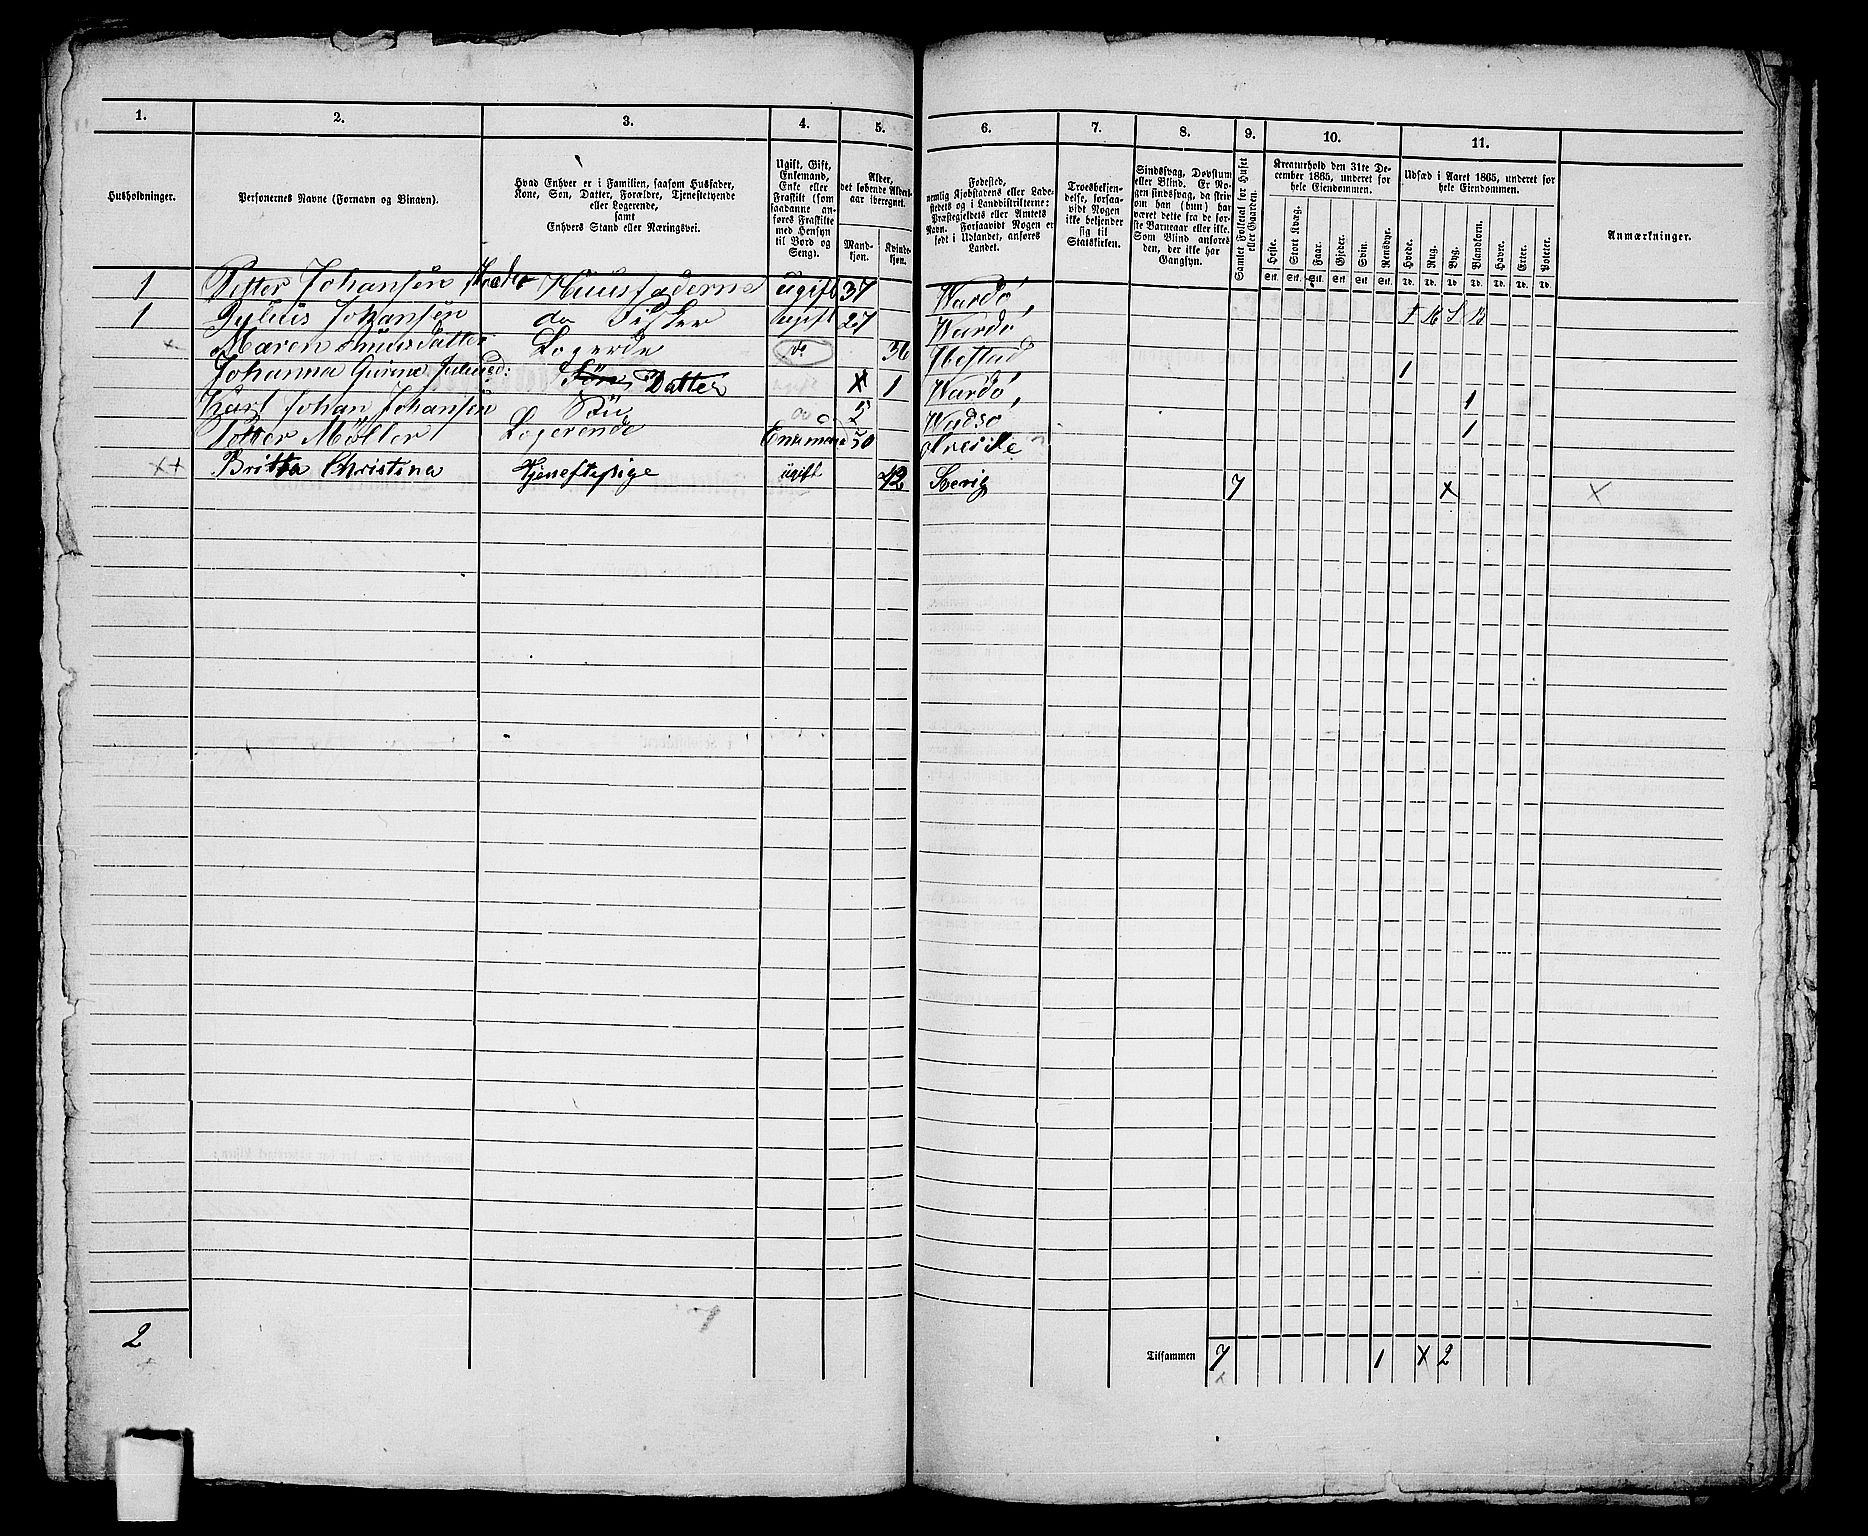 1. 2. 3. 4. 5. 6. 7. 8. 9. 10. 11.
Husholdninger.
Personernes Navne (Fornavn og Binavn).
Hvad Enhver er i Familien, saasom Husfader,
Kone, Søn, Datter, Forældre, Tjenestetyende
eller Logerende,
samt
Enhvers Stand eller Næringsvei.
Ugift, Gift,
Enkemand,
Enke eller
Fraskilt (som
saadanne an-
føres Fraskilte
med Hensyn
til Bord og
Seng).
Alder,
det løbende Alders-
aar iberegnet.
Mand-
kjøn.
Kvinde-
kjøn.
Fødested,
nemlig Kjøbstadens eller Lade-
stedets og i Landdistrikterne:
Præstegjeldets eller Amtets
Navn. Forsaavidt Nogen er
født i Udlandet, anføres
Landet.
Troesbekjen-
delse, forsaa-
vidt Nogen
ikke bekjender
sig til
Statskirken.
Sindssvag, Døvstum
eller Blind. Er No-
gen sindssvag, da skriv
om han (hun) har
været dette fra de før-
ste Barneaar eller ikke.
Som Blind anføres
den, der ikke har
Gangsyn.
Samlet Folketal for Huset
eller Gaarden.
Kreaturhold den 31te De-
cember 1865, underet for
hele Eiendommen.
Heste. Stort Kvæg. Faar. Gjeder. Svin. Rensdyr.
Stk. Stk. Stk. Stk. Stk. Stk.
Udsæd i Aaret 1865, underet for
hele Eiendommen.
Hvede. Rug. Byg. Blandkorn. Havre. Erter. Poteter.
Td. Td. Td. Td. Td. Td. Td.
Anmærkninger.
1 Petter Johansen Huusfaderne Ugift 37 Wardø,
1 Julius Johansen do Fisker Ugift 27 Wardø,
Maren Knudsdatter Logerde do 36 Ibestad 1
Johanna Datter 1 Wardø, 1
Karl Johan Johansen Sön 5 Wadsø 1
Petter Möller Logerende Enkemand 50
xx Britta Christina Tjenestepige ugift 42 Sverig 7 x x
2 Tilsammen 7 1 x 2